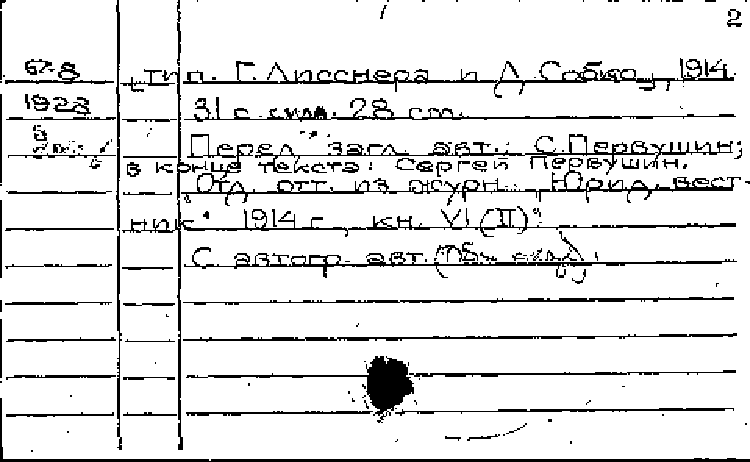 2
67-8 тип. Г. Лисснера и Д. Собко, 1914.
1923 31 с. 28 cm.
Перед загл. авт.: С. Первушин;
в конце текста: Сергей Первушин.
Отд. отт. из журн.: „Юрид. вест-
ник" 1914 г., кн. VI (II).
С автогр. авт.